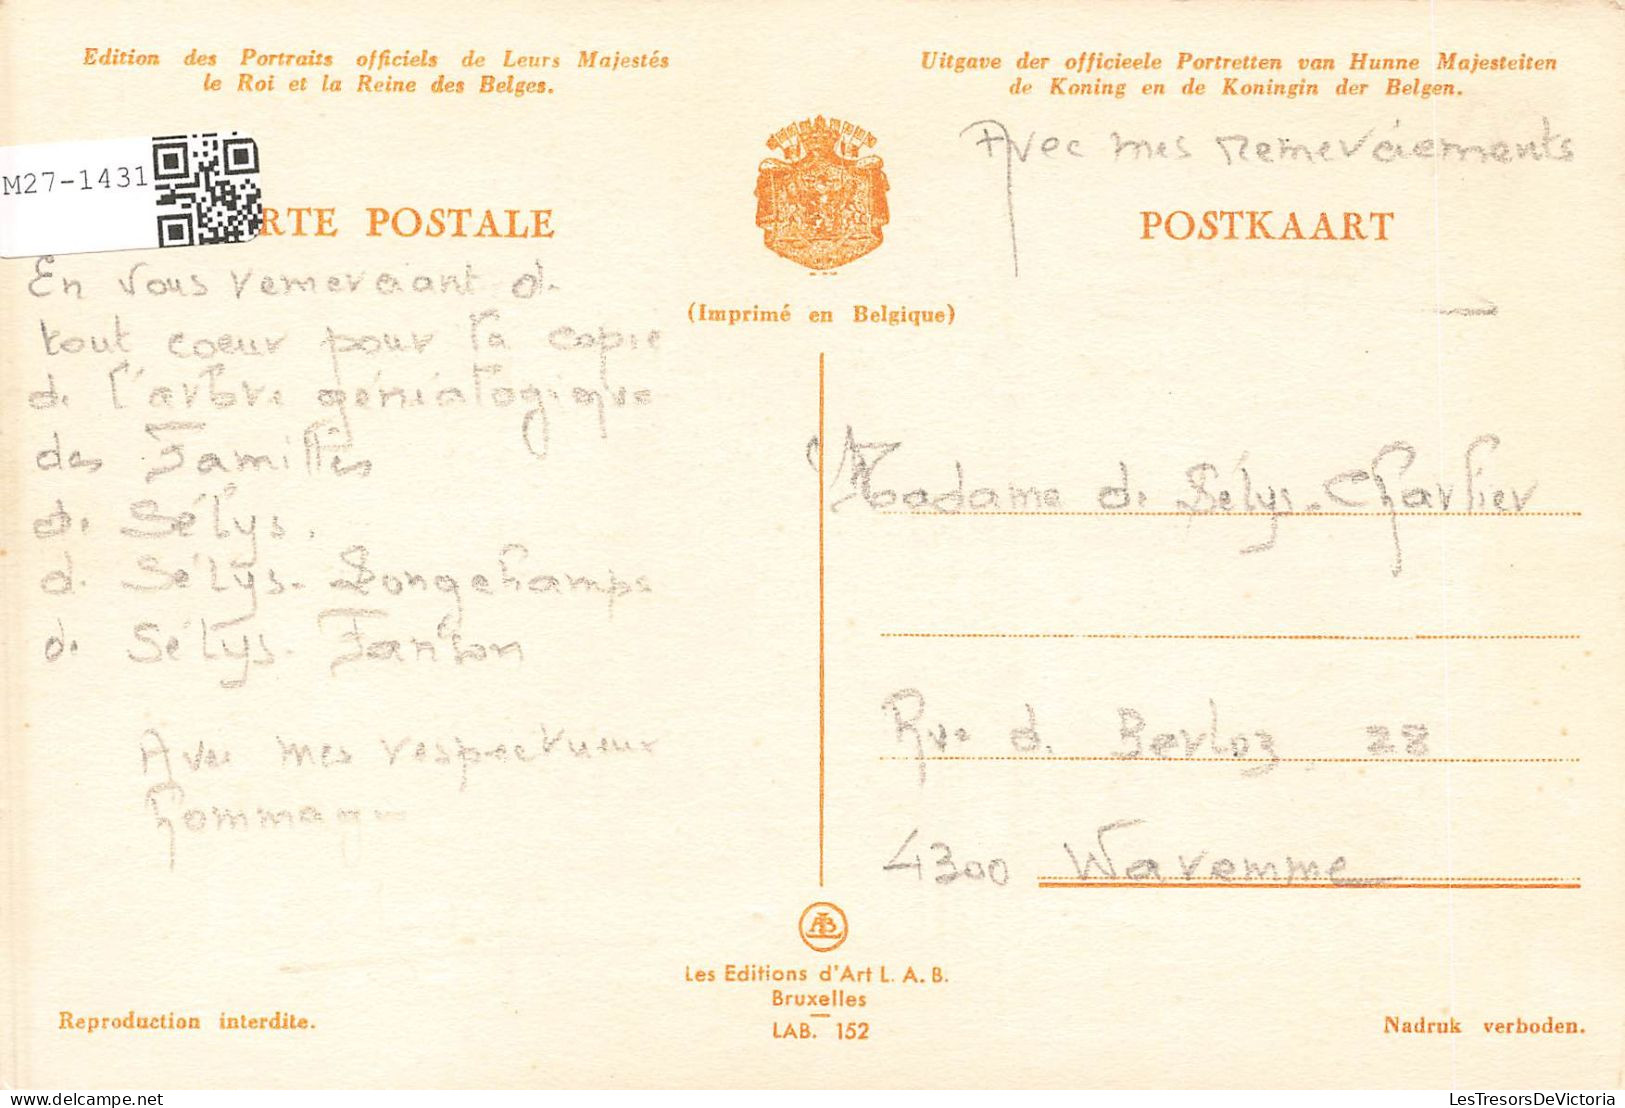 Edition des Portraits officiels de Leurs Majestés
le Roi et la Reine des Belges.
Uitgave der officieele Portretten van Hunne Majesteiten
de Koning en de Koningin der Belgen.
Avec mes remerciements
M27-1431
RTE POSTALE
POSTKAART
(Imprimé en Belgique)
En vous remerciant de
tout coeur pour la copie
de l'arbre généalogique
des Familles
de Sélys.
de Sélys-Longchamps
de Sélys-Fanson
Avec mes respectueux
hommages
Madame de Sélys-Charlier
Rue de Berloz 28
4300 Waremme
Les Editions d'Art L. A. B.
Bruxelles
LAB. 152
Reproduction interdite.
Nadruk verboden.
delcampe.net
LesTresorsDeVictoria